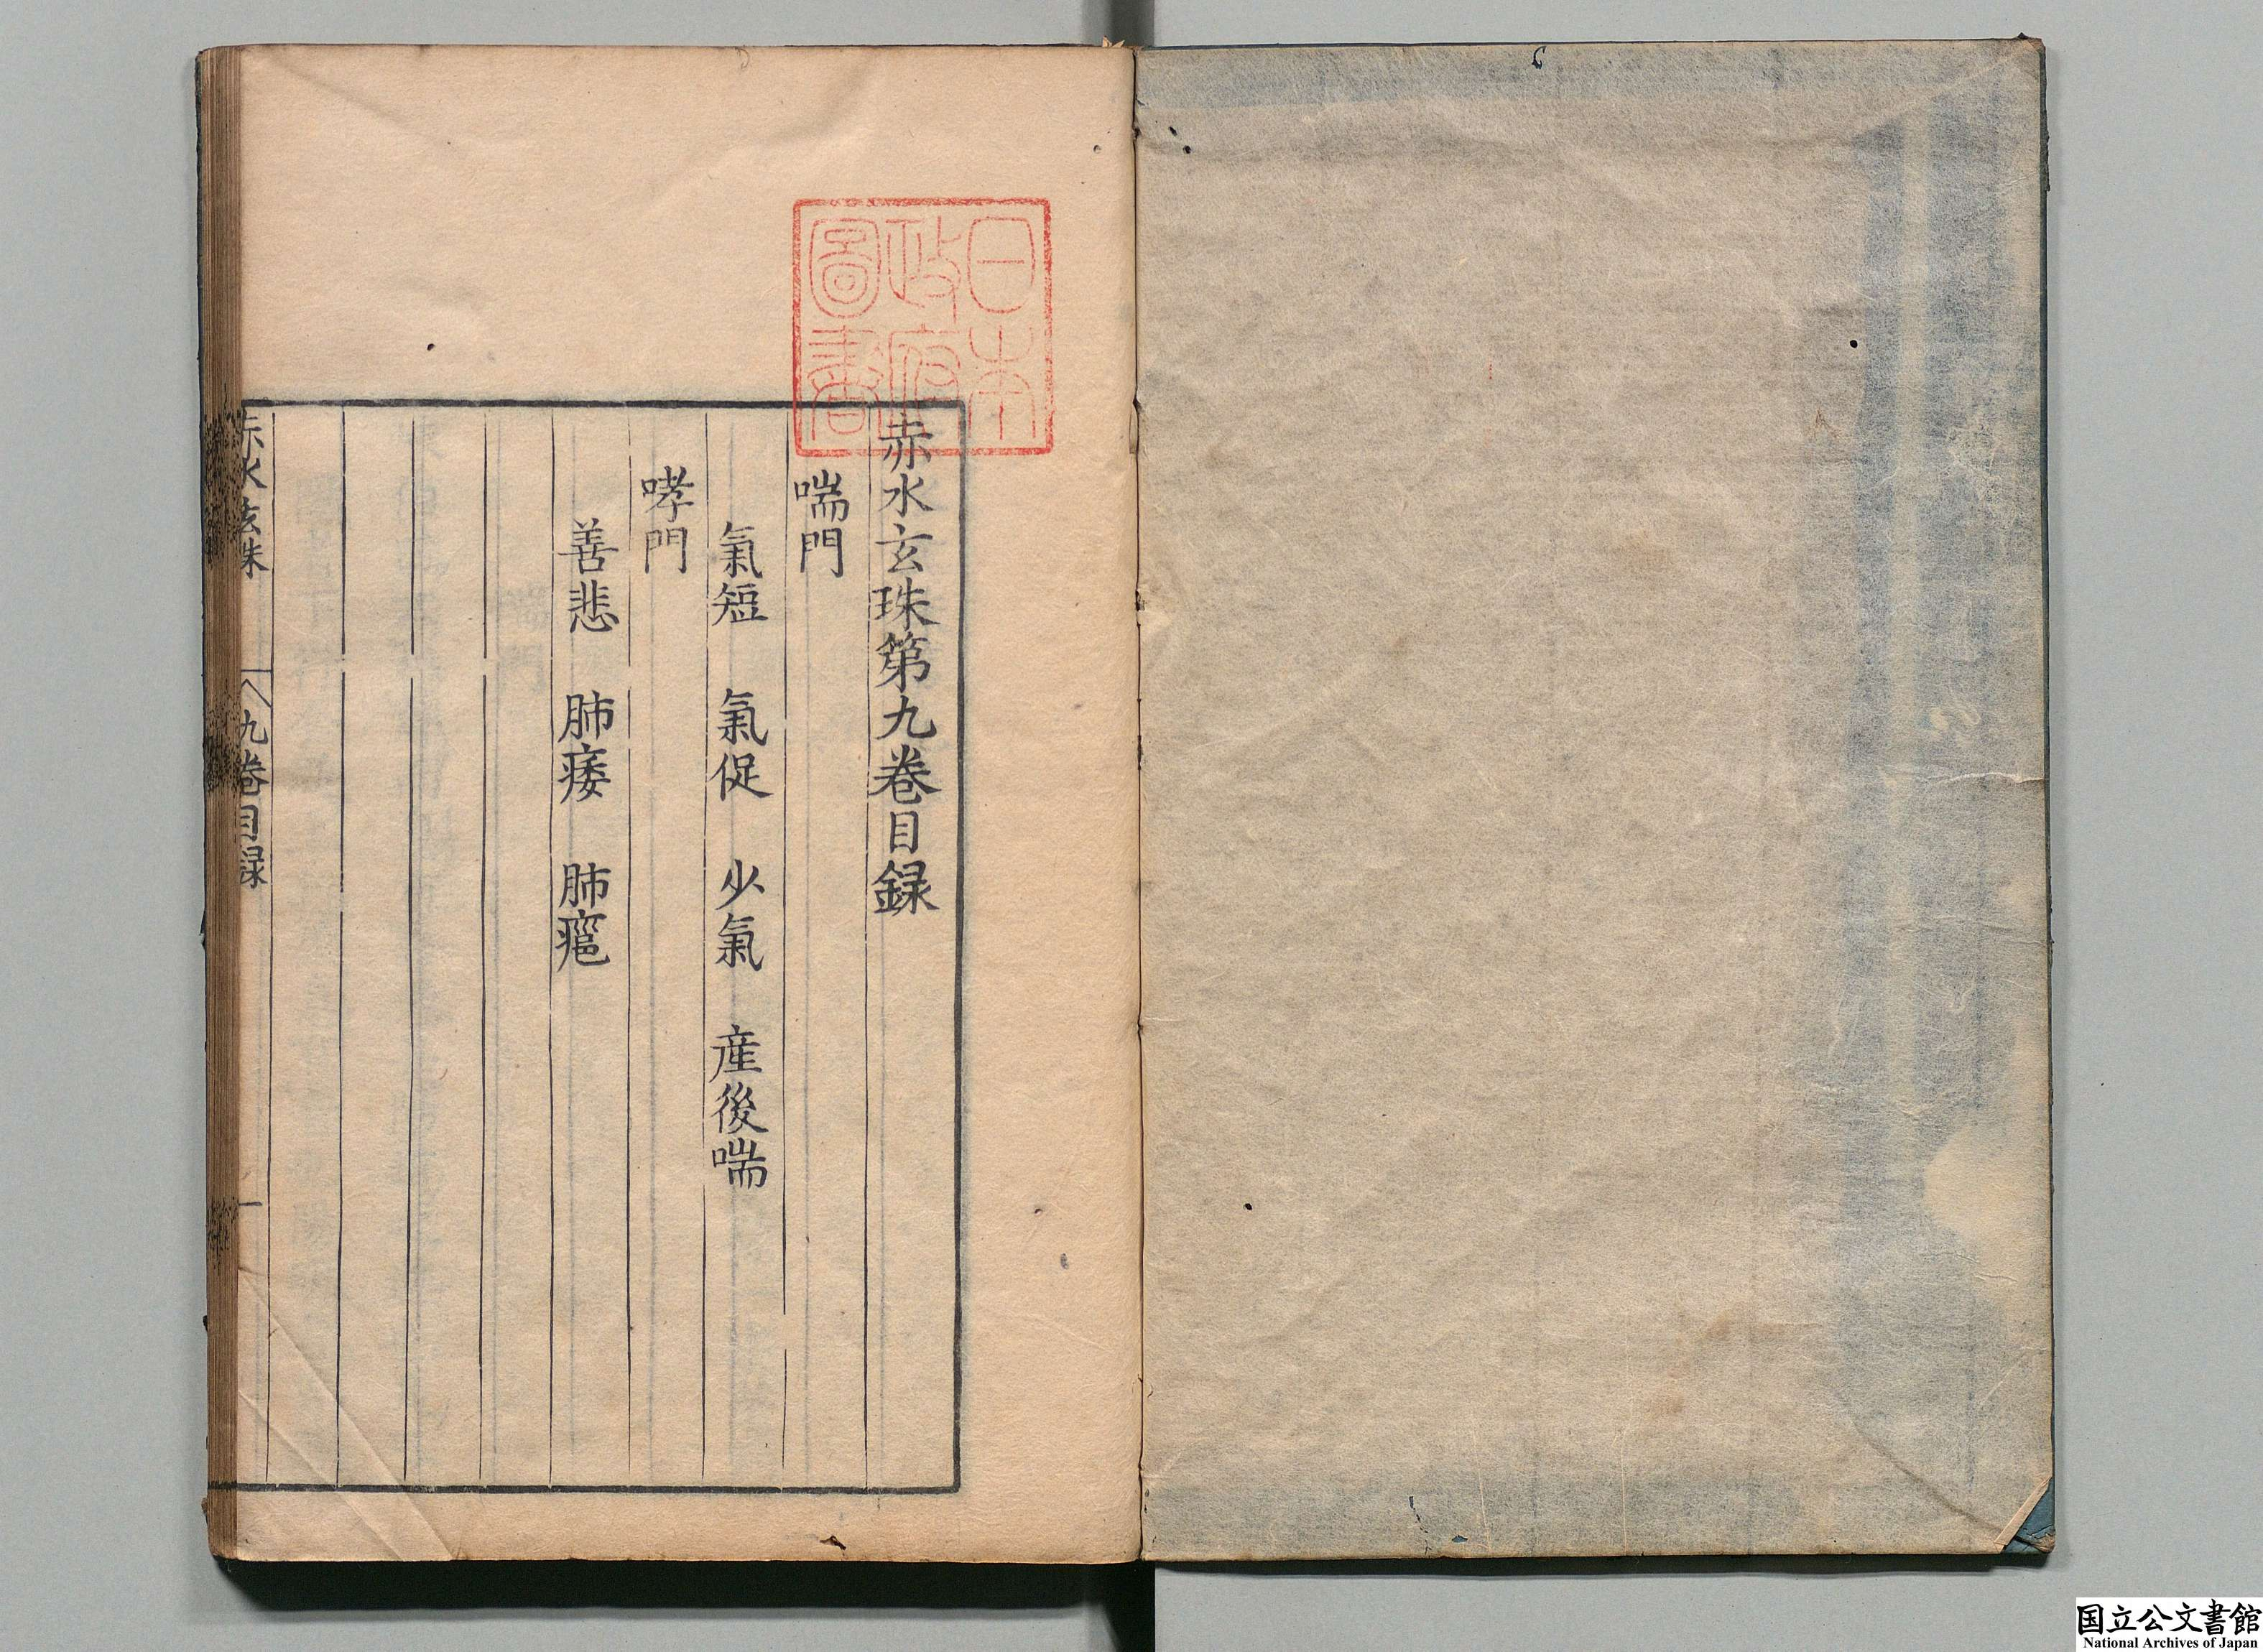 日本
政府
圖書
赤水玄珠第九卷目録
喘門
氣短　氣促　少氣　産後喘
哮門
善悲　肺痿　肺癰
赤水玄珠　九卷目録　一
国立公文書館
National Archives of Japan